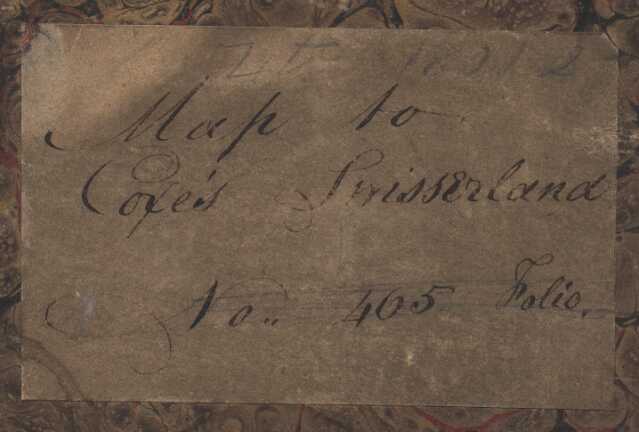 Map to
Coxe's Swisserland
No.. 465 Folio.